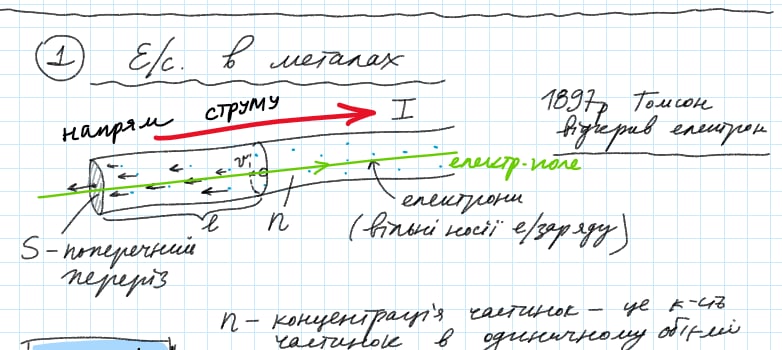 1 Е/с. в металах
напрям струму I
1897р Томсон
відкрив електрон
v₁
електр. поле
l
n
електрони
(вільні носії е/заряду)
S - поперечний
переріз
n - концентрація частинок - це к-сть
частинок в одиничному об'ємі